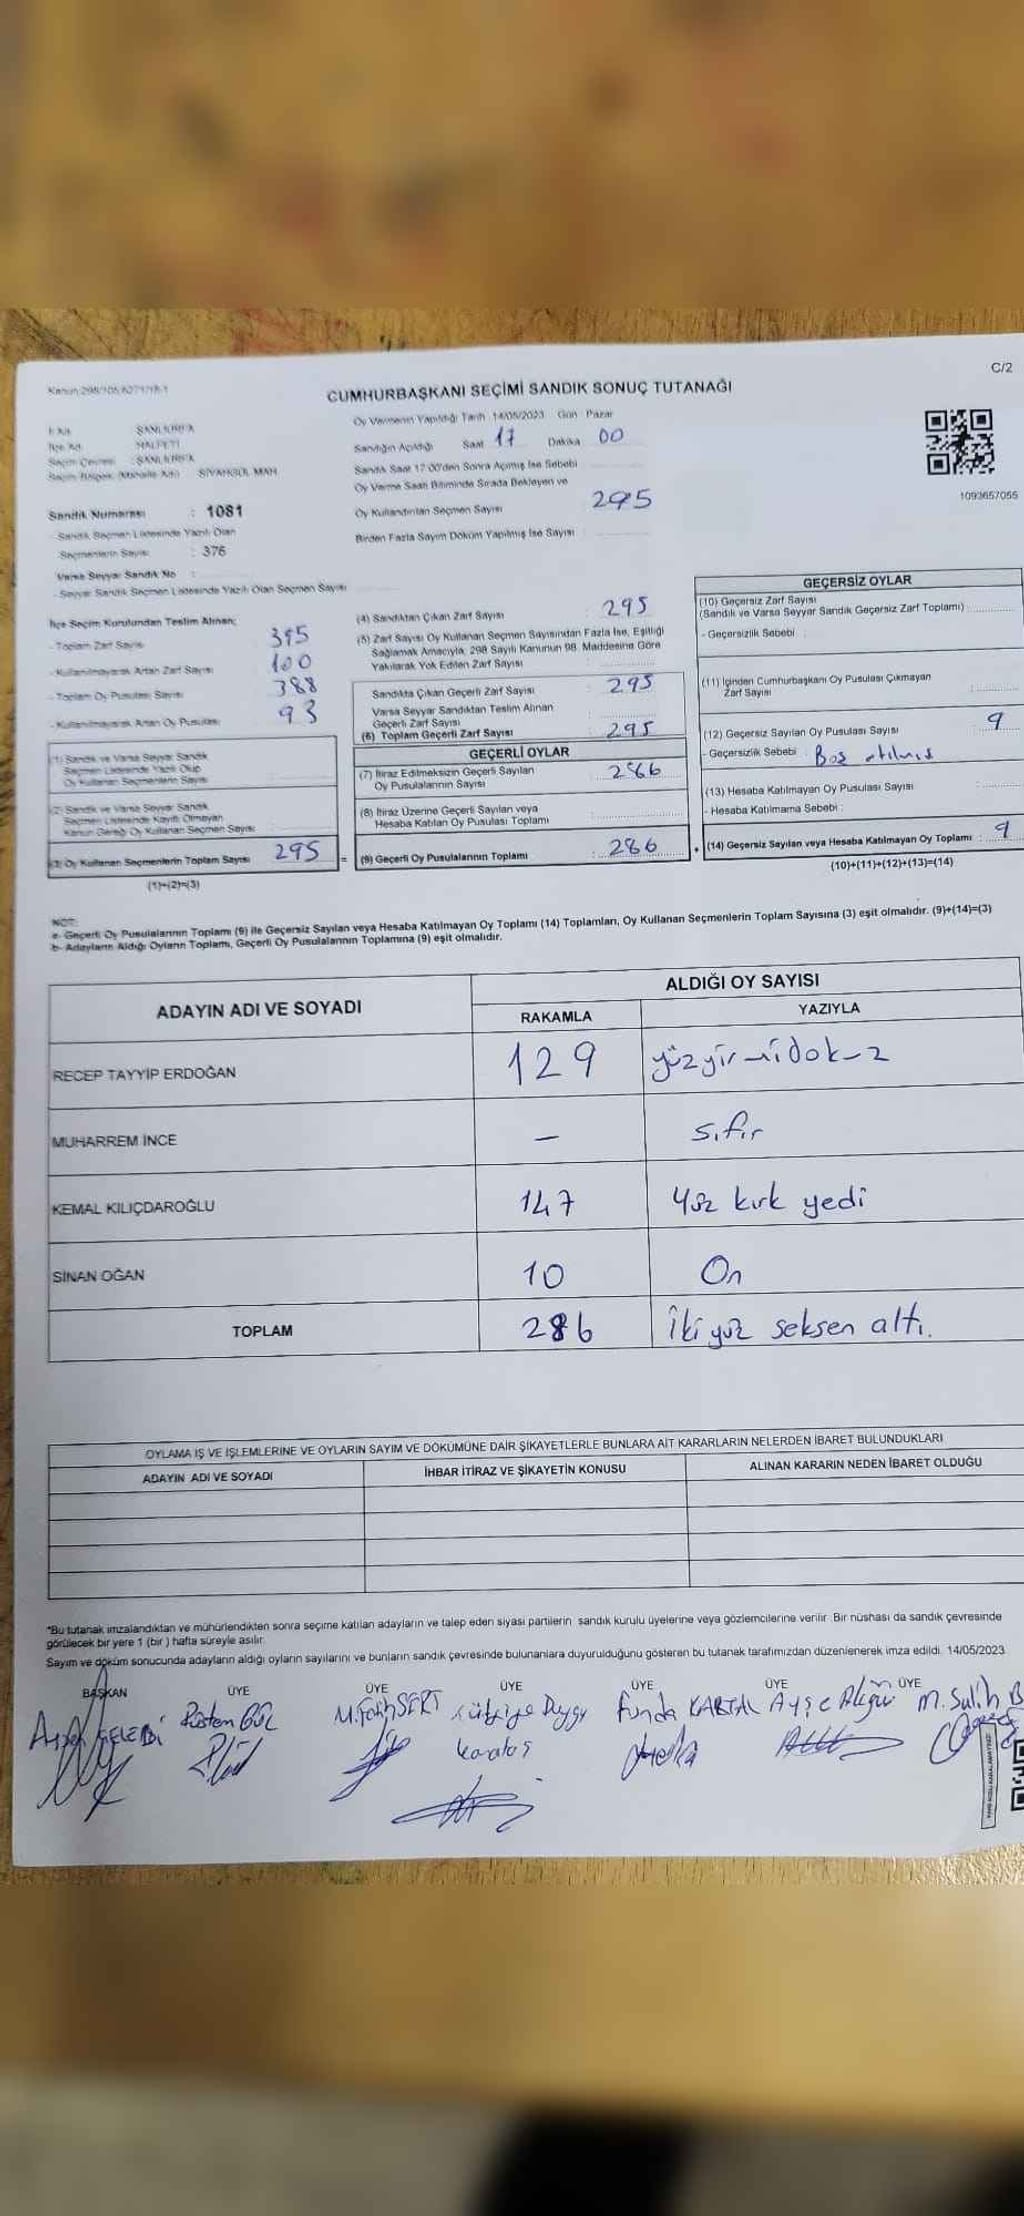 C/2
CUMHURBAŞKANI SEÇİMİ SANDIK SONUÇ TUTANAĞI
Oy Vermenin Yapıldığı Tarih 14/05/2023 Gün Pazar
ŞANLIURFA
Sandığın Açıldığı Saat 17 Dakika 00
HALFETİ
Seçim Çevresi : ŞANLIURFA
Sandık Saat 17:00'den Sonra Açılmış İse Sebebi
SİYAHGÜL MAH
Oy Verme Saati Bitiminde Sırada Bekleyen ve
Oy Kullandırılan Seçmen Sayısı 295
1093657055
Sandık Numarası : 1081
Birden Fazla Sayım Döküm Yapılmış İse Sayısı
Sandık Seçmen Listesinde Yazılı Olan
Seçmenlerin Sayısı : 376
Varsa Seyyar Sandık No :
- Seyyar Sandık Seçmen Listesinde Yazılı Olan Seçmen Sayısı
İlçe Seçim Kurulundan Teslim Alınan;
- Toplam Zarf Sayısı 395
- Kullanılmayarak Artan Zarf Sayısı 100
- Toplam Oy Pusulası Sayısı 388
- Kullanılmayarak Artan Oy Pusulası 93
(1) Sandık ve Varsa Seyyar Sandık
Seçmen Listesinde Yazılı Olup
Oy Kullanan Seçmenlerin Sayısı
(2) Sandık ve Varsa Seyyar Sandık
Seçmen Listesinde Kayıtlı Olmayan
Kanun Gereği Oy Kullanan Seçmen Sayısı
(3) Oy Kullanan Seçmenlerin Toplam Sayısı 295 =
(1)+(2)=(3)
(4) Sandıktan Çıkan Zarf Sayısı 295
(5) Zarf Sayısı Oy Kullanan Seçmen Sayısından Fazla İse, Eşitliği
Sağlamak Amacıyla; 298 Sayılı Kanunun 98. Maddesine Göre
Yakılarak Yok Edilen Zarf Sayısı
Sandıkta Çıkan Geçerli Zarf Sayısı : 295
Varsa Seyyar Sandıktan Teslim Alınan
Geçerli Zarf Sayısı
(6) Toplam Geçerli Zarf Sayısı : 295
GEÇERLİ OYLAR
(7) İtiraz Edilmeksizin Geçerli Sayılan
Oy Pusulalarının Sayısı : 286
(8) İtiraz Üzerine Geçerli Sayılan veya
Hesaba Katılan Oy Pusulası Toplamı
(9) Geçerli Oy Pusulalarının Toplamı : 286 +
GEÇERSİZ OYLAR
(10) Geçersiz Zarf Sayısı
(Sandık ve Varsa Seyyar Sandık Geçersiz Zarf Toplamı) :
- Geçersizlik Sebebi :
(11) İçinden Cumhurbaşkanı Oy Pusulası Çıkmayan
Zarf Sayısı :
(12) Geçersiz Sayılan Oy Pusulası Sayısı : 9
- Geçersizlik Sebebi : Boş atılmış
(13) Hesaba Katılmayan Oy Pusulası Sayısı
- Hesaba Katılmama Sebebi :
(14) Geçersiz Sayılan veya Hesaba Katılmayan Oy Toplamı : 9
(10)+(11)+(12)+(13)=(14)
NOT:
a- Geçerli Oy Pusulalarının Toplamı (9) ile Geçersiz Sayılan veya Hesaba Katılmayan Oy Toplamı (14) Toplamları, Oy Kullanan Seçmenlerin Toplam Sayısına (3) eşit olmalıdır. (9)+(14)=(3)
b- Adayların Aldığı Oyların Toplamı, Geçerli Oy Pusulalarının Toplamına (9) eşit olmalıdır.
ADAYIN ADI VE SOYADI
ALDIĞI OY SAYISI
RAKAMLA YAZIYLA
RECEP TAYYİP ERDOĞAN 129 yüzyirmidokuz
MUHARREM İNCE – sıfır
KEMAL KILIÇDAROĞLU 147 Yüz kırk yedi
SİNAN OĞAN 10 On
TOPLAM 286 İki yüz seksen altı.
OYLAMA İŞ VE İŞLEMLERİNE VE OYLARIN SAYIM VE DÖKÜMÜNE DAİR ŞİKAYETLERLE BUNLARA AİT KARARLARIN NELERDEN İBARET BULUNDUKLARI
ADAYIN ADI VE SOYADI İHBAR İTİRAZ VE ŞİKAYETİN KONUSU ALINAN KARARIN NEDEN İBARET OLDUĞU
*Bu tutanak imzalandıktan ve mühürlendikten sonra seçime katılan adayların ve talep eden siyasi partilerin sandık kurulu üyelerine veya gözlemcilerine verilir. Bir nüshası da sandık çevresinde
görülecek bir yere 1 (bir) hafta süreyle asılır.
Sayım ve döküm sonucunda adayların aldığı oyların sayılarını ve bunların sandık çevresinde bulunanlara duyurulduğunu gösteren bu tutanak tarafımızdan düzenlenerek imza edildi. 14/05/2023
BAŞKAN ÜYE ÜYE ÜYE ÜYE ÜYE ÜYE
ÇELEBİ Rüstem GÜL M.Fatih SERT Duygu Funda KARTAL Ayşe M. Salih B
Karataş